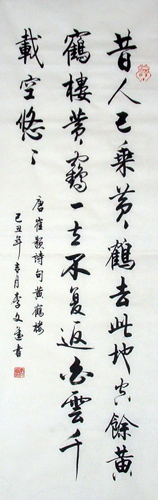 昔人已乘黃鶴去此地空餘黃
鶴樓黃鶴一去不復返白雲千
載空悠〻
唐崔顥詩句黃鶴樓
己丑年 月李文 書